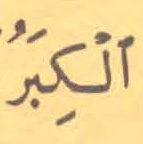 ٱلْكِبَرُ